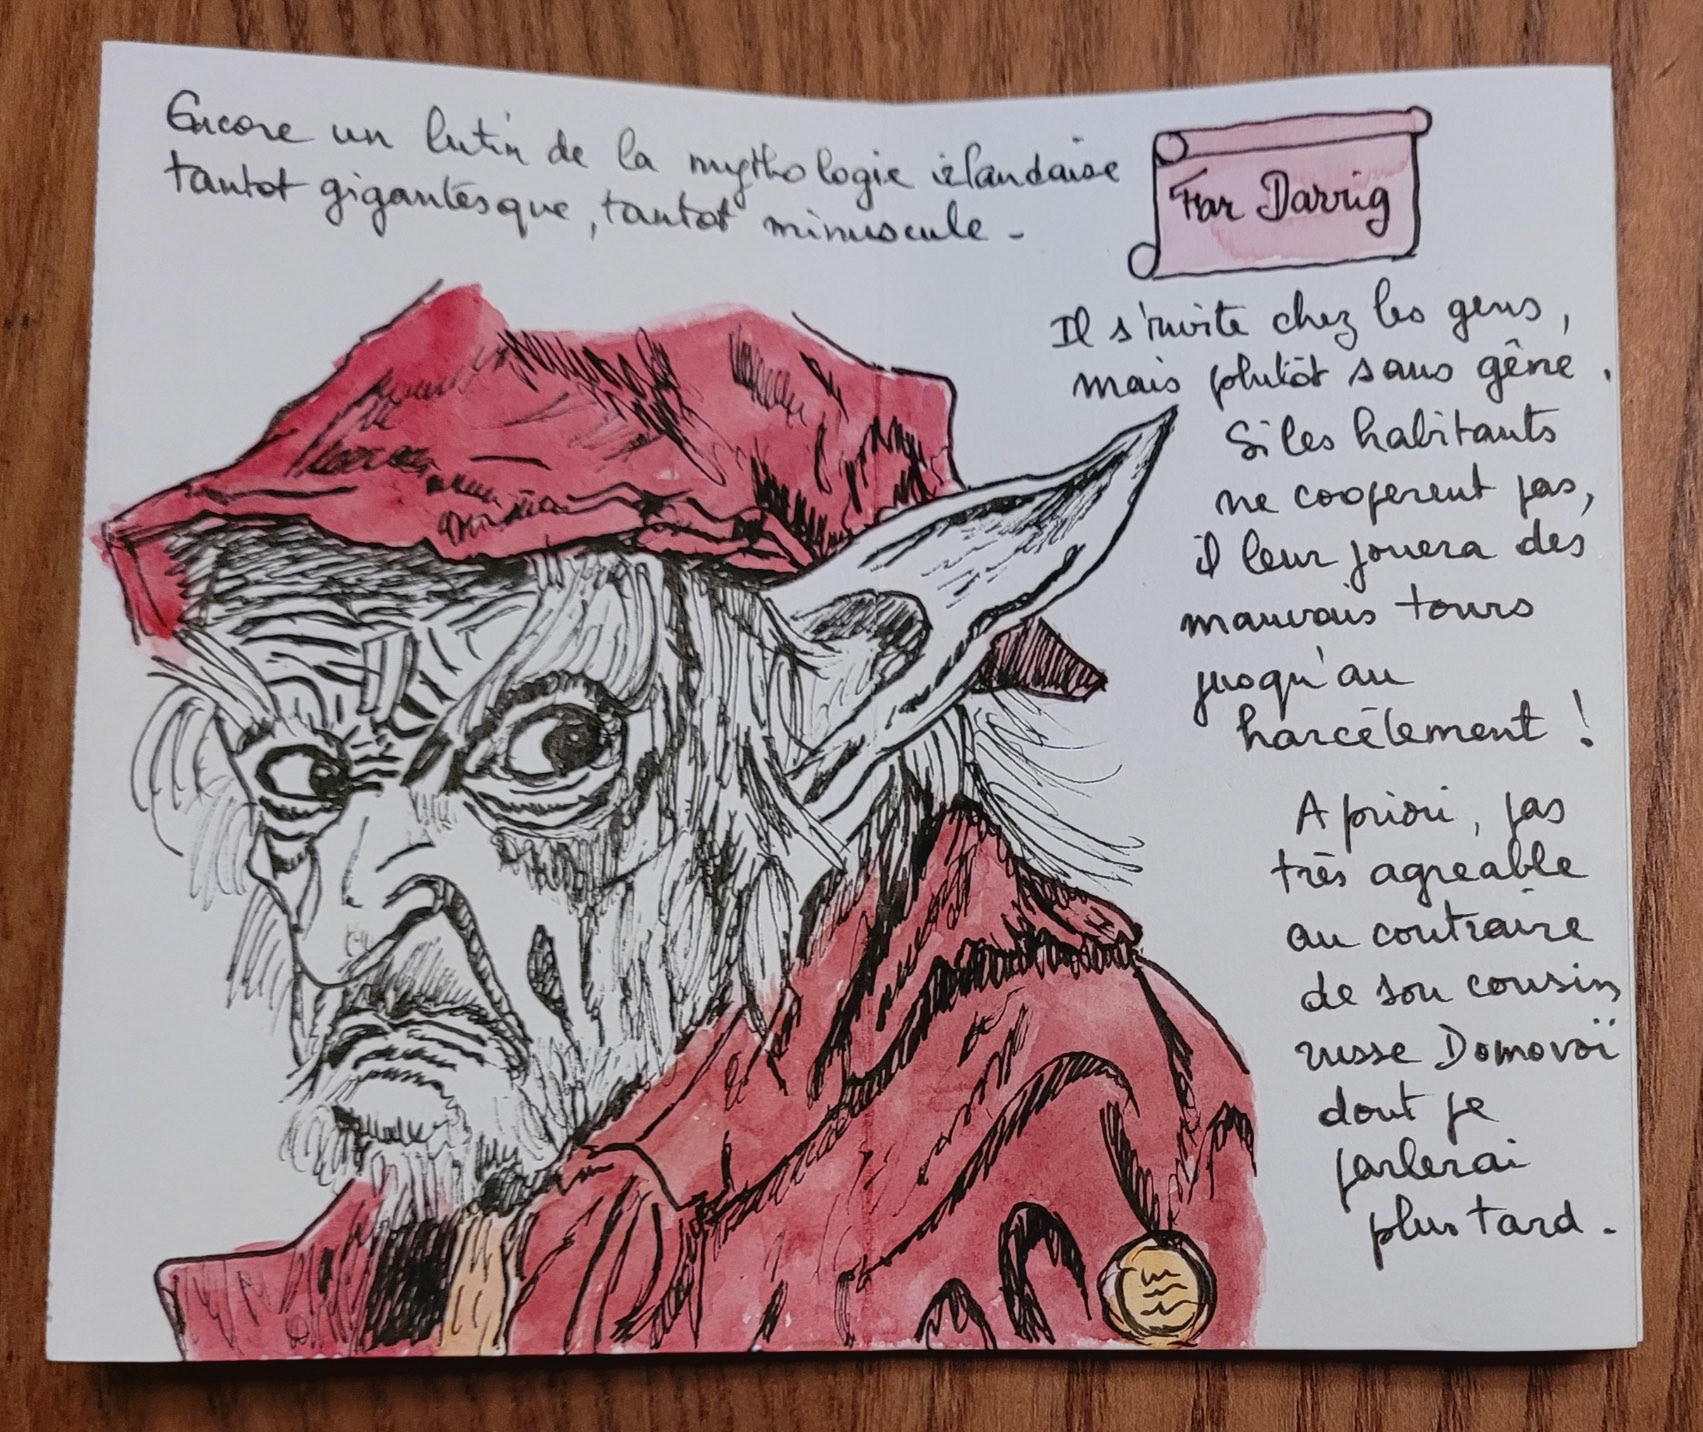 Encore un lutin de la mythologie irlandaise
tantot gigantesque, tantot minuscule -
Far Darrig
Il s'invite chez les gens,
mais plutôt sans gêne.
Si les habitants
ne cooperent pas,
il leur jouera des
mauvais tours
jusqu'au
harcèlement !
A priori, pas
très agreable
au contraire
de son cousin
russe Domovoï
dont je
parlerai
plus tard.